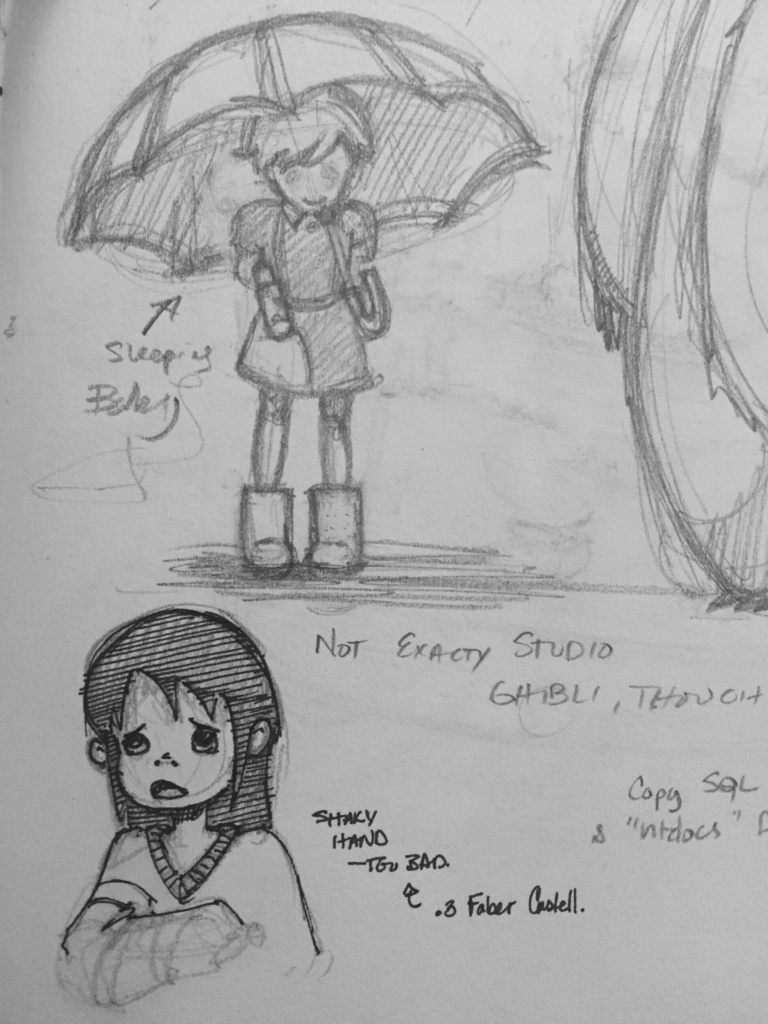 Sleeping
Baby
NOT EXACTY STUDIO
GHIBLI, THOUGH
Copy SQL
"ntdocs" D
SHAKY
HAND
—TOO BAD.
.3 Faber Castell.